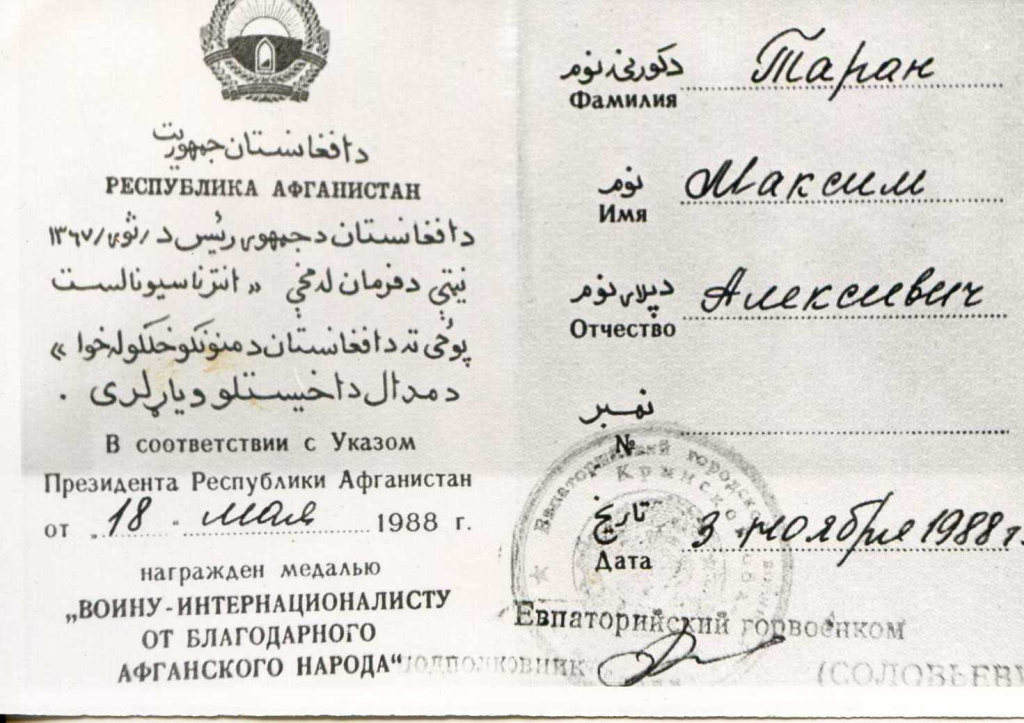 دافغانستان جمهوریت
РЕСПУБЛИКА АФГАНИСТАН
دافغانستان دجمهوری رئیس د /ثوری/ ۱۳۶۷
نیټې دفرمان له مخې «انترناسیونالست
پوځی ته دافغانستان د منونکو خلکو له خوا»
د مدال داخیستلو ویاړ لری .
В соответствии с Указом
Президента Республики Афганистан
от „18 “ мая 1988 г.
награжден медалью
„ВОИНУ-ИНТЕРНАЦИОНАЛИСТУ
ОТ БЛАГОДАРНОГО
АФГАНСКОГО НАРОДА“
دکورنۍ نوم Таран
Фамилия
نوم Максим
Имя
دپلار نوم Алексиевич
Отчество
نمبر
№
تاریخ 3 ноября 1988 г.
Дата
Евпаторийский городско
Крымской
Евпаторийский горвоенком
подполковник
(СОЛОВЬЕВ